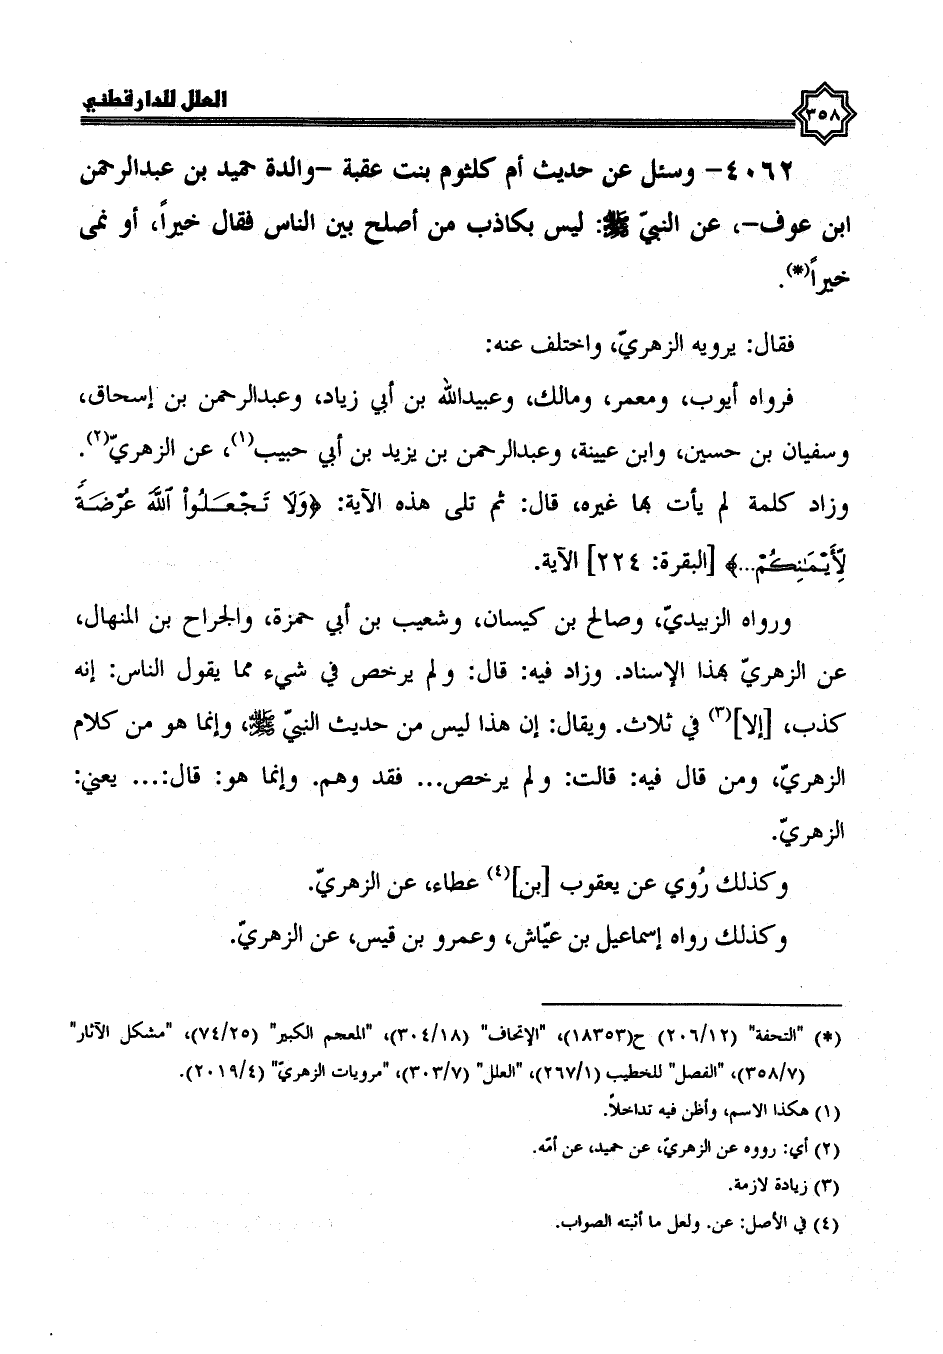 العلل للدارقطني
٣٥٨
٤٠٦٢- وسئل عن حديث أم كلثوم بنت عقبة -والدة حميد بن عبدالرحمن
ابن عوف-، عن النبيّ ﷺ: ليس بكاذب من أصلح بين الناس فقال خيراً، أو نمى
خيراً(*).
فقال: يرويه الزهريّ، واختلف عنه:
فرواه أيوب، ومعمر، ومالك، وعبيدالله بن أبي زياد، وعبدالرحمن بن إسحاق،
وسفيان بن حسين، وابن عيينة، وعبدالرحمن بن يزيد بن أبي حبيب(١)، عن الزهريّ(٢).
وزاد كلمة لم يأت بها غيره، قال: ثم تلى هذه الآية: ﴿وَلَا تَجْعَلُواْ ٱللَّهَ عُرْضَةً
لِّأَيْمَٰنِكُمْ...﴾ [البقرة: ٢٢٤] الآية.
ورواه الزبيديّ، وصالح بن كيسان، وشعيب بن أبي حمزة، والجراح بن المنهال،
عن الزهريّ بهذا الإسناد. وزاد فيه: قال: ولم يرخص في شيء مما يقول الناس: إنه
كذب، [إلا](٣) في ثلاث. ويقال: إن هذا ليس من حديث النبيّ ﷺ، وإنما هو من كلام
الزهريّ، ومن قال فيه: قالت: ولم يرخص... فقد وهم. وإنما هو: قال:... يعني:
الزهريّ.
وكذلك رُوي عن يعقوب [بن](٤) عطاء، عن الزهريّ.
وكذلك رواه إسماعيل بن عيّاش، وعمرو بن قيس، عن الزهريّ.
(*) "التحفة" (٢٠٦/١٢) ح(١٨٣٥٣)، "الإتحاف" (٣٠٤/١٨)، "المعجم الكبير" (٧٤/٢٥)، "مشكل الآثار"
(٣٥٨/٧)، "الفصل" للخطيب (٢٦٧/١)، "العلل" (٣٠٣/٧)، "مرويات الزهريّ" (٢٠١٩/٤).
(١) هكذا الاسم، وأظن فيه تداخلاً.
(٢) أي: رووه عن الزهريّ، عن حميد، عن أمّه.
(٣) زيادة لازمة.
(٤) في الأصل: عن. ولعل ما أثبته الصواب.